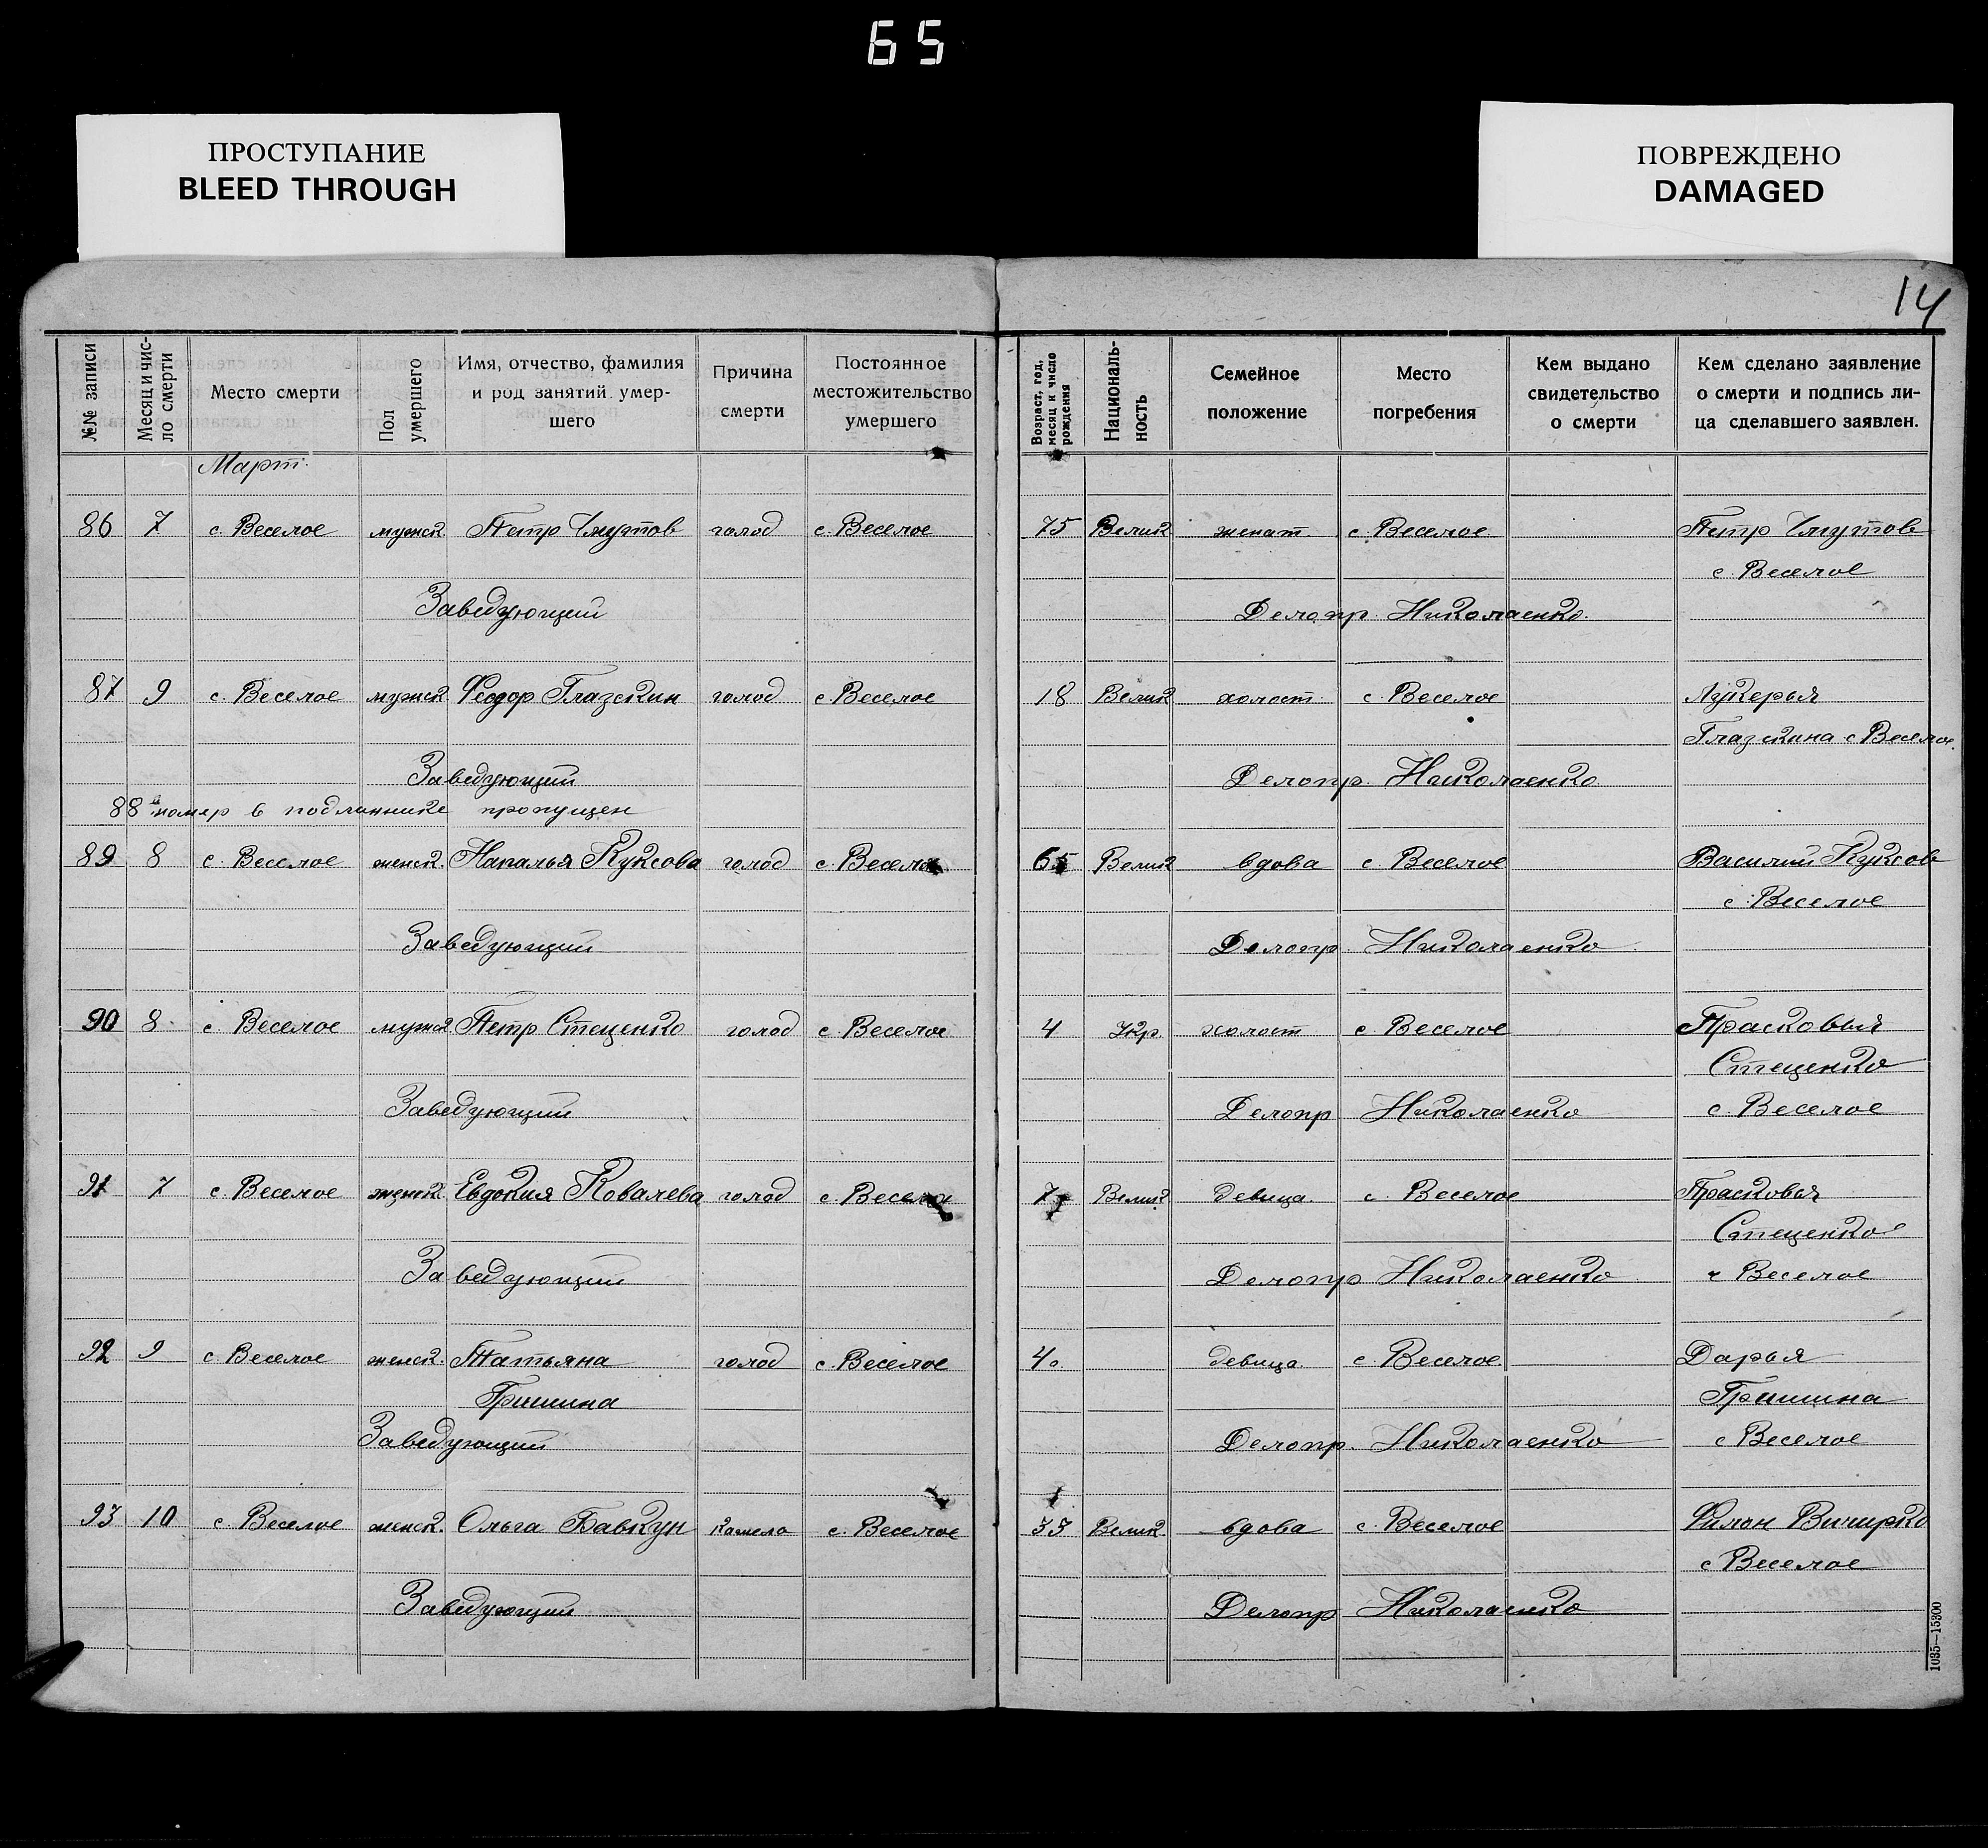 65
ПРОСТУПАНИЕ
BLEED THROUGH
ПОВРЕЖДЕНО
DAMAGED
14
№№ записи
Месяц и чис-
ло смерти
Место смерти
Пол
умершего
Имя, отчество, фамилия
и род занятий умер-
шего
Причина
смерти
Постоянное
местожительство
умершего
Возраст, год,
месяц и число
рождения
Националь-
ность
Семейное
положение
Место
погребения
Кем выдано
свидетельство
о смерти
Кем сделано заявление
о смерти и подпись ли-
ца сделавшего заявлен.
Март.
86 7 с. Веселое мужск Петр голод с. Веселое 75 Велик женат. с. Веселое. Петр
с. Веселое
Заведующий Делопр. Николаенко.
87 9 с. Веселое мужск Феодор Глазскин голод с. Веселое 18 Велик холост. с. Веселое Лукерья
Глазскина с Веселое.
Заведующий Делопр. Николаенко
88 й номер в подлиннике пропущен
89 8 с. Веселое женск. Наталья Куксова голод с. Веселое 65 Велик вдова с. Веселое Василий Куксов
с. Веселое
Заведующий Делопр. Николаенко
90 8. с. Веселое мужск Петр Стеценко голод с. Веселое 4 Укр. холост с. Веселое Прасковья
Стеценко
Заведующий Делопр Николаенко с. Веселое
91 7 с. Веселое женск Евдокия Ковалева голод с. Веселое 7 Велик. девица с. Веселое Прасковья
Стеценко
Заведующий Делопр Николаенко с Веселое
92 9 с. Веселое женск. Татьяна голод с. Веселое девица с. Веселое. Дарья
Гришина Гришина
Заведующий Делопр. Николаенко с Веселое
93 10 с. Веселое женск. Ольга Бавкун с. Веселое Велик. вдова с. Веселое Филон
с Веселое
Заведующий Делопр Николаенко
1035—15300